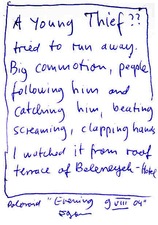 A Young Thief??
tried to run away.
Big commotion, people
following him and
catching him, beating
screaming, clapping hands
I watched it from roof
terrace of - Hotel
Polaroid "Evening 9 VIII 04"